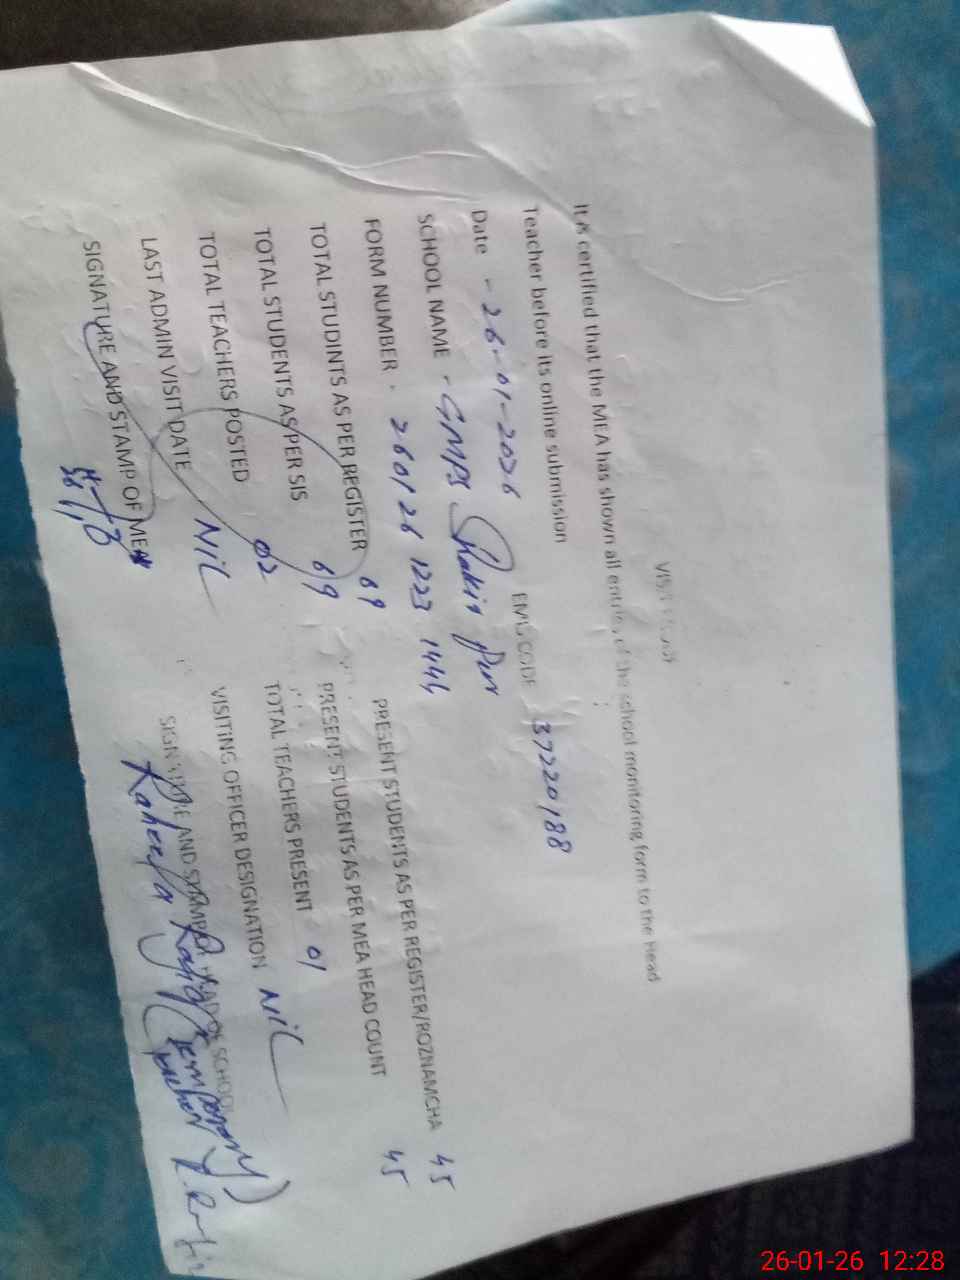 VISIT PROOF
It is certified that the MEA has shown all entries of the school monitoring form to the Head
Teacher before its online submission
Date - 26-01-2026 EMIS CODE 37220188
SCHOOL NAME - GMPS Shakir Pur
FORM NUMBER - 260126 1223 1446
TOTAL STUDINTS AS PER REGISTER 69 PRESENT STUDENTS AS PER REGISTER/ROZNAMCHA 45
TOTAL STUDENTS AS PER SIS 69 PRESENT STUDENTS AS PER MEA HEAD COUNT 45
TOTAL TEACHERS POSTED 02 TOTAL TEACHERS PRESENT 01
LAST ADMIN VISIT DATE Nil VISITING OFFICER DESIGNATION Nil
SIGNATURE AND STAMP OF MEA SIGNATURE AND STAMP OF HEAD OF SCHOOL
Raheela Rafiq (Temporary Teacher)
26-01-26 12:28